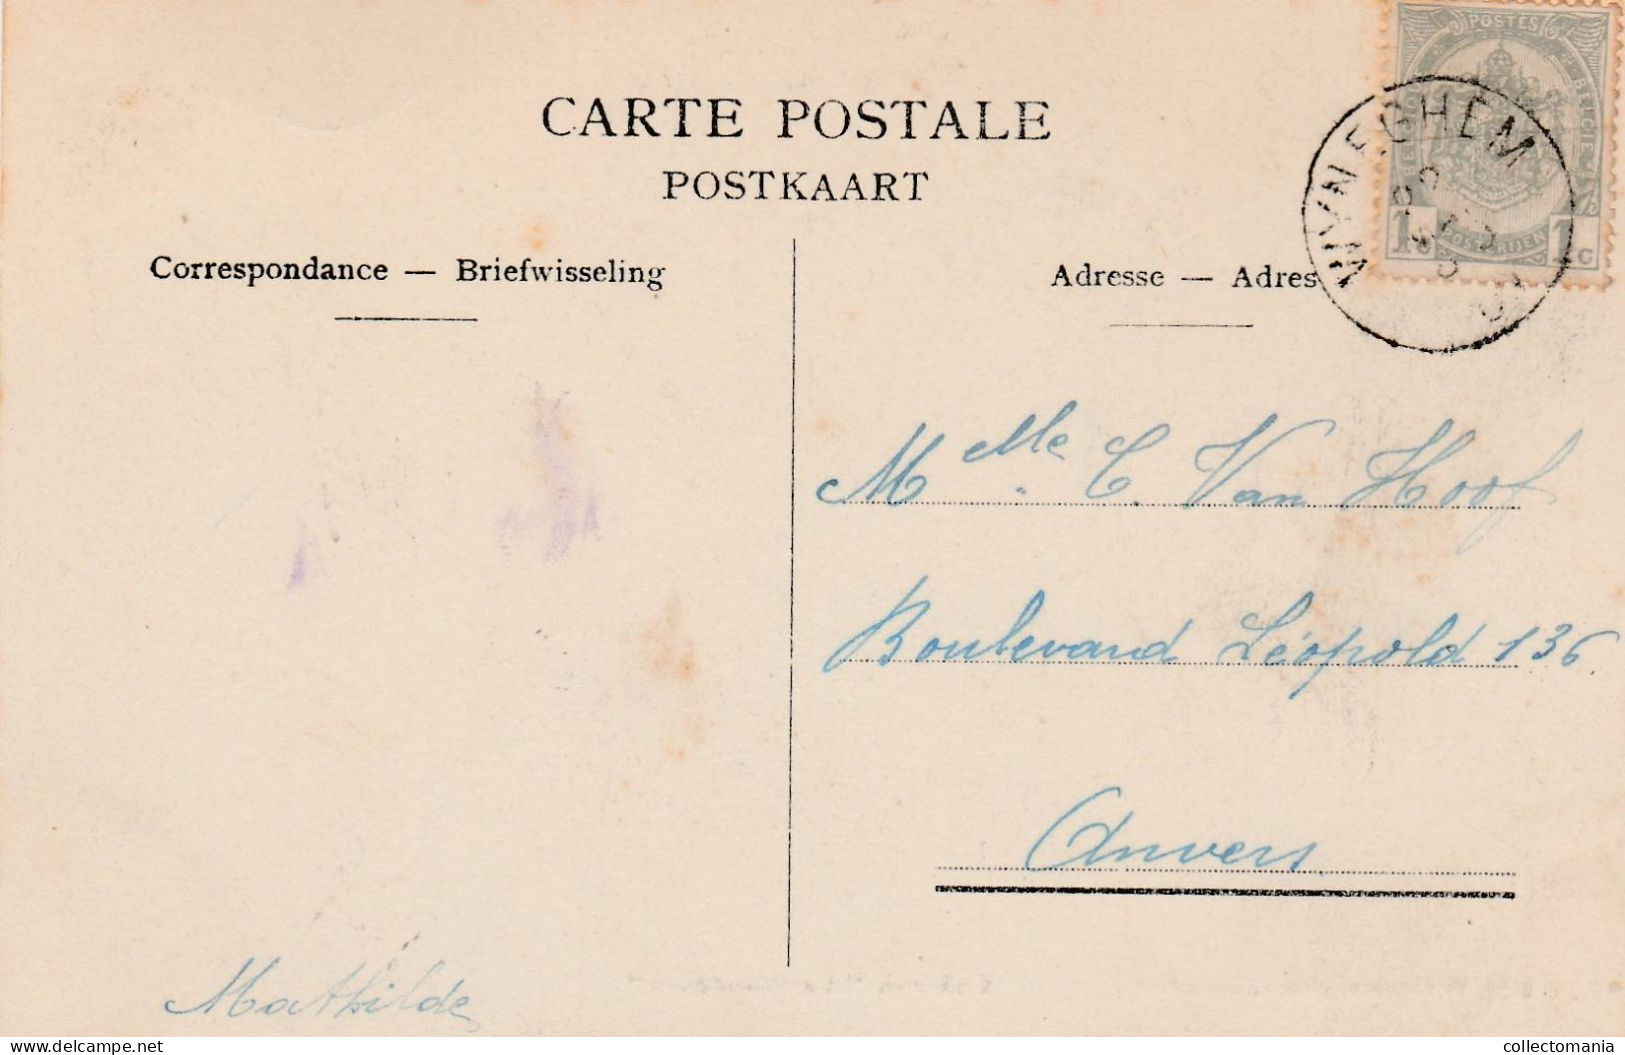 CARTE POSTALE
POSTKAART
Correspondance — Briefwisseling
Adresse — Adres
POSTES
BELGIE
POSTERIJEN
1 c 1 c
WYNEGHEM
Melle C. Van Hoof
Boulevard Léopold 136.
Anvers
Mathilde
www.delcampe.net
collectomania